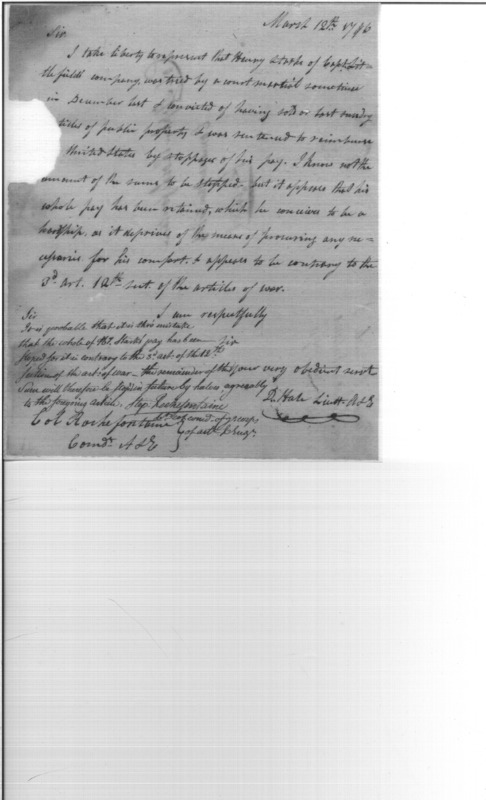 March 12th 1796
Sir
I take liberty to represent that Henry Stacke of Capt Lit=
tlefields company, was tried by a court martial sometime
in December last & convicted of having sold or lost sundry
ticles of public property & was sentenced to reimburse
United States by stoppages of his pay. I know not the
amount of the sums to be stopped - but it appears that his
whole pay has been retained, which he conceives to be a
hardship, as it deprives of the means of procuring any ne=
cessaries for his comfort, & appears to be contrary to the
3d. art. 12th sect. of the articles of war.
I am respectfully
Sir
your very obedient servt
D. Hale Lieutt A&E
Sir
It is probable that it is thro mistake
that the whole of Hy. Stacks pay has been
stoped for it is contrary to the 3d art. of the 12th
section of the art. of war - the remainder of the
will therefore be stopd in future by halves agreeably
to the foregoing article. Step Rochefontaine
Lt. Col comdt. of ye corps
of art. & Engrs.
Col Rochefontaine
Comdt. A&E